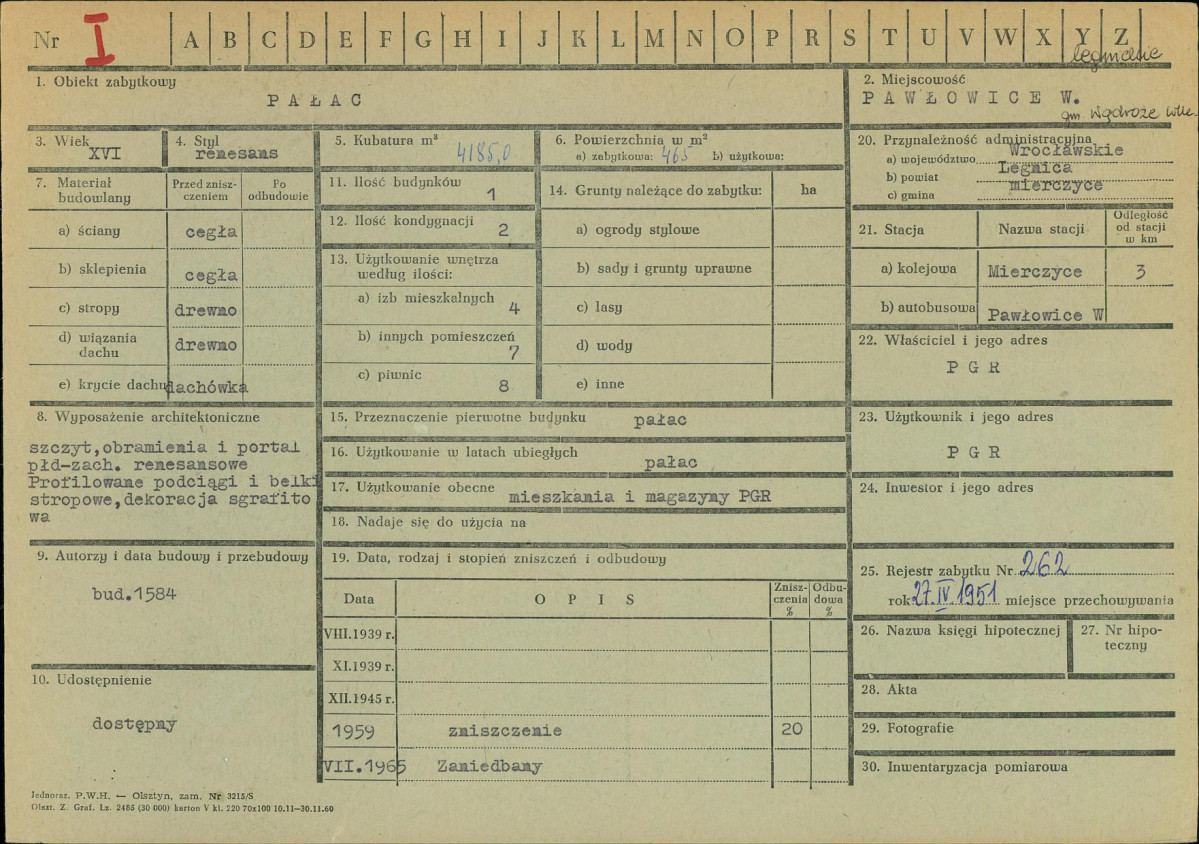 Nr I A B C D E F G H I J K L M N O P R S T U V W X Y Z
legnickie
1. Obiekt zabytkowy
PAŁAC
2. Miejscowość
PAWŁOWICE W.
gm Wądroże Wlk.
3. Wiek
XVI
4. Styl
renesans
5. Kubatura m³
4185,0
6. Powierzchnia w m²
a) zabytkowa: 465 b) użytkowa:
20. Przynależność administracyjna
a) województwo Wrocławskie
b) powiat Legnica
c) gmina mierczyce
7. Materiał budowlany
Przed zniszczeniem
Po odbudowie
a) ściany cegła
b) sklepienia cegła
c) stropy drewno
d) wiązania dachu drewno
e) krycie dachu dachówka
11. Ilość budynków
1
12. Ilość kondygnacji
2
13. Użytkowanie wnętrza
według ilości:
a) izb mieszkalnych
4
b) innych pomieszczeń
7
c) piwnic
8
14. Grunty należące do zabytku: ha
a) ogrody stylowe
b) sady i grunty uprawne
c) lasy
d) wody
e) inne
21. Stacja Nazwa stacji Odległość
od stacji
w km
a) kolejowa Mierczyce 3
b) autobusowa Pawłowice W
22. Właściciel i jego adres
PGR
8. Wyposażenie architektoniczne
szczyt,obramienia i portal
płd-zach. renesansowe
Profilowane podciągi i belki
stropowe,dekoracja sgrafito
wa
15. Przeznaczenie pierwotne budynku pałac
16. Użytkowanie w latach ubiegłych
pałac
17. Użytkowanie obecne mieszkania i magazyny PGR
18. Nadaje się do użycia na
23. Użytkownik i jego adres
PGR
24. Inwestor i jego adres
9. Autorzy i data budowy i przebudowy
bud.1584
19. Data, rodzaj i stopień zniszczeń i odbudowy
Data OPIS Zniszczenia % Odbudowa %
VIII.1939 r.
XI.1939 r.
XII.1945 r.
1959 zniszczenie 20
VII.1965 Zaniedbany
25. Rejestr zabytku Nr 262
rok 27.IV.1951 miejsce przechowywania
26. Nazwa księgi hipotecznej
27. Nr hipo-
teczny
10. Udostępnienie
dostępny
28. Akta
29. Fotografie
30. Inwentaryzacja pomiarowa
Jednoraz. P.W.H. — Olsztyn, zam. Nr 3215/S
Olszt. Z. Graf. Lz. 2485 (30 000) karton V kl. 220 70x100 10.11—30.11.60